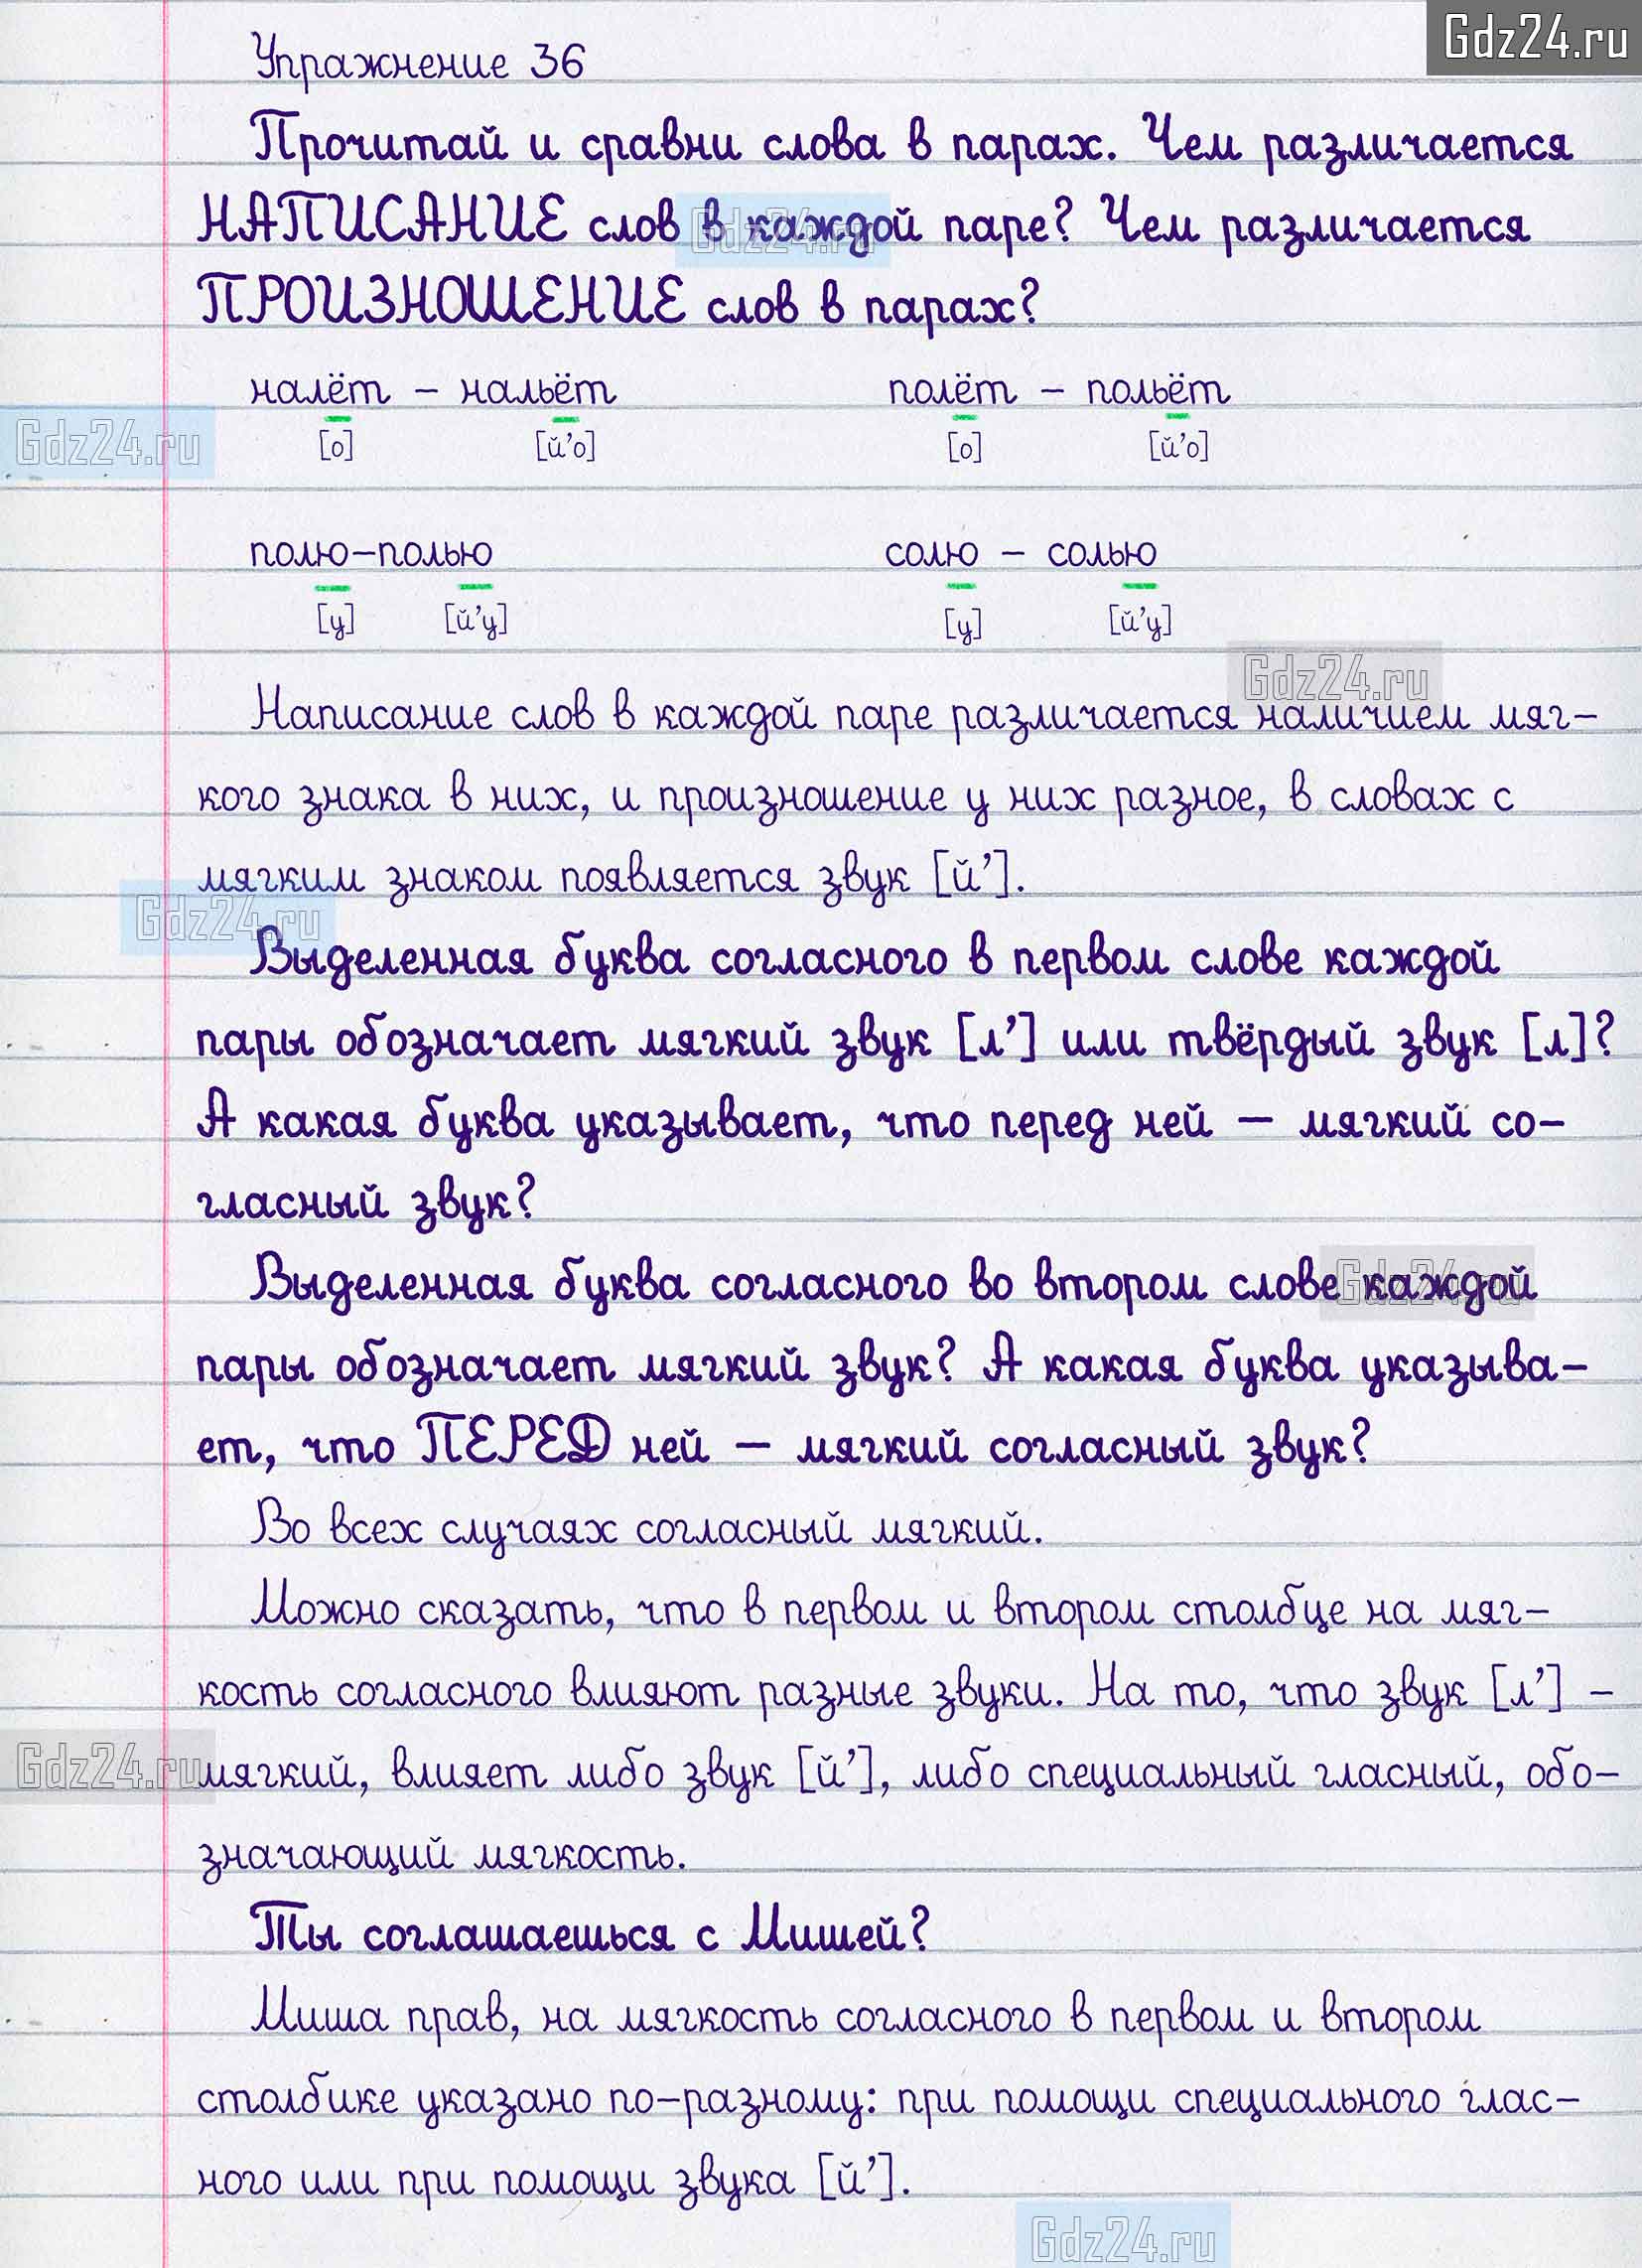 Gdz24.ru
Упражнение 36
Прочитай и сравни слова в парах. Чем различается
НАПИСАНИЕ слов в каждой паре? Чем различается
Gdz24.ru
ПРОИЗНОШЕНИЕ слов в парах?
налёт – нальёт полёт – польёт
Gdz24.ru
[о] [й’о] [о] [й’о]
полю–полью солю – солью
[у] [й’у] [у] [й’у]
Gdz24.ru
Написание слов в каждой паре различается наличием мяг-
кого знака в них, и произношение у них разное, в словах с
мягким знаком появляется звук [й’].
Gdz24.ru
Выделенная буква согласного в первом слове каждой
пары обозначает мягкий звук [л’] или твёрдый звук [л]?
А какая буква указывает, что перед ней – мягкий со-
гласный звук?
Выделенная буква согласного во втором слове каждой
Gdz24.ru
пары обозначает мягкий звук? А какая буква указыва-
ет, что ПЕРЕД ней – мягкий согласный звук?
Во всех случаях согласный мягкий.
Можно сказать, что в первом и втором столбце на мяг-
кость согласного влияют разные звуки. На то, что звук [л’] –
Gdz24.ru
мягкий, влияет либо звук [й’], либо специальный гласный, обо-
значающий мягкость.
Ты соглашаешься с Мишей?
Миша прав, на мягкость согласного в первом и втором
столбике указано по-разному: при помощи специального глас-
ного или при помощи звука [й’].
Gdz24.ru